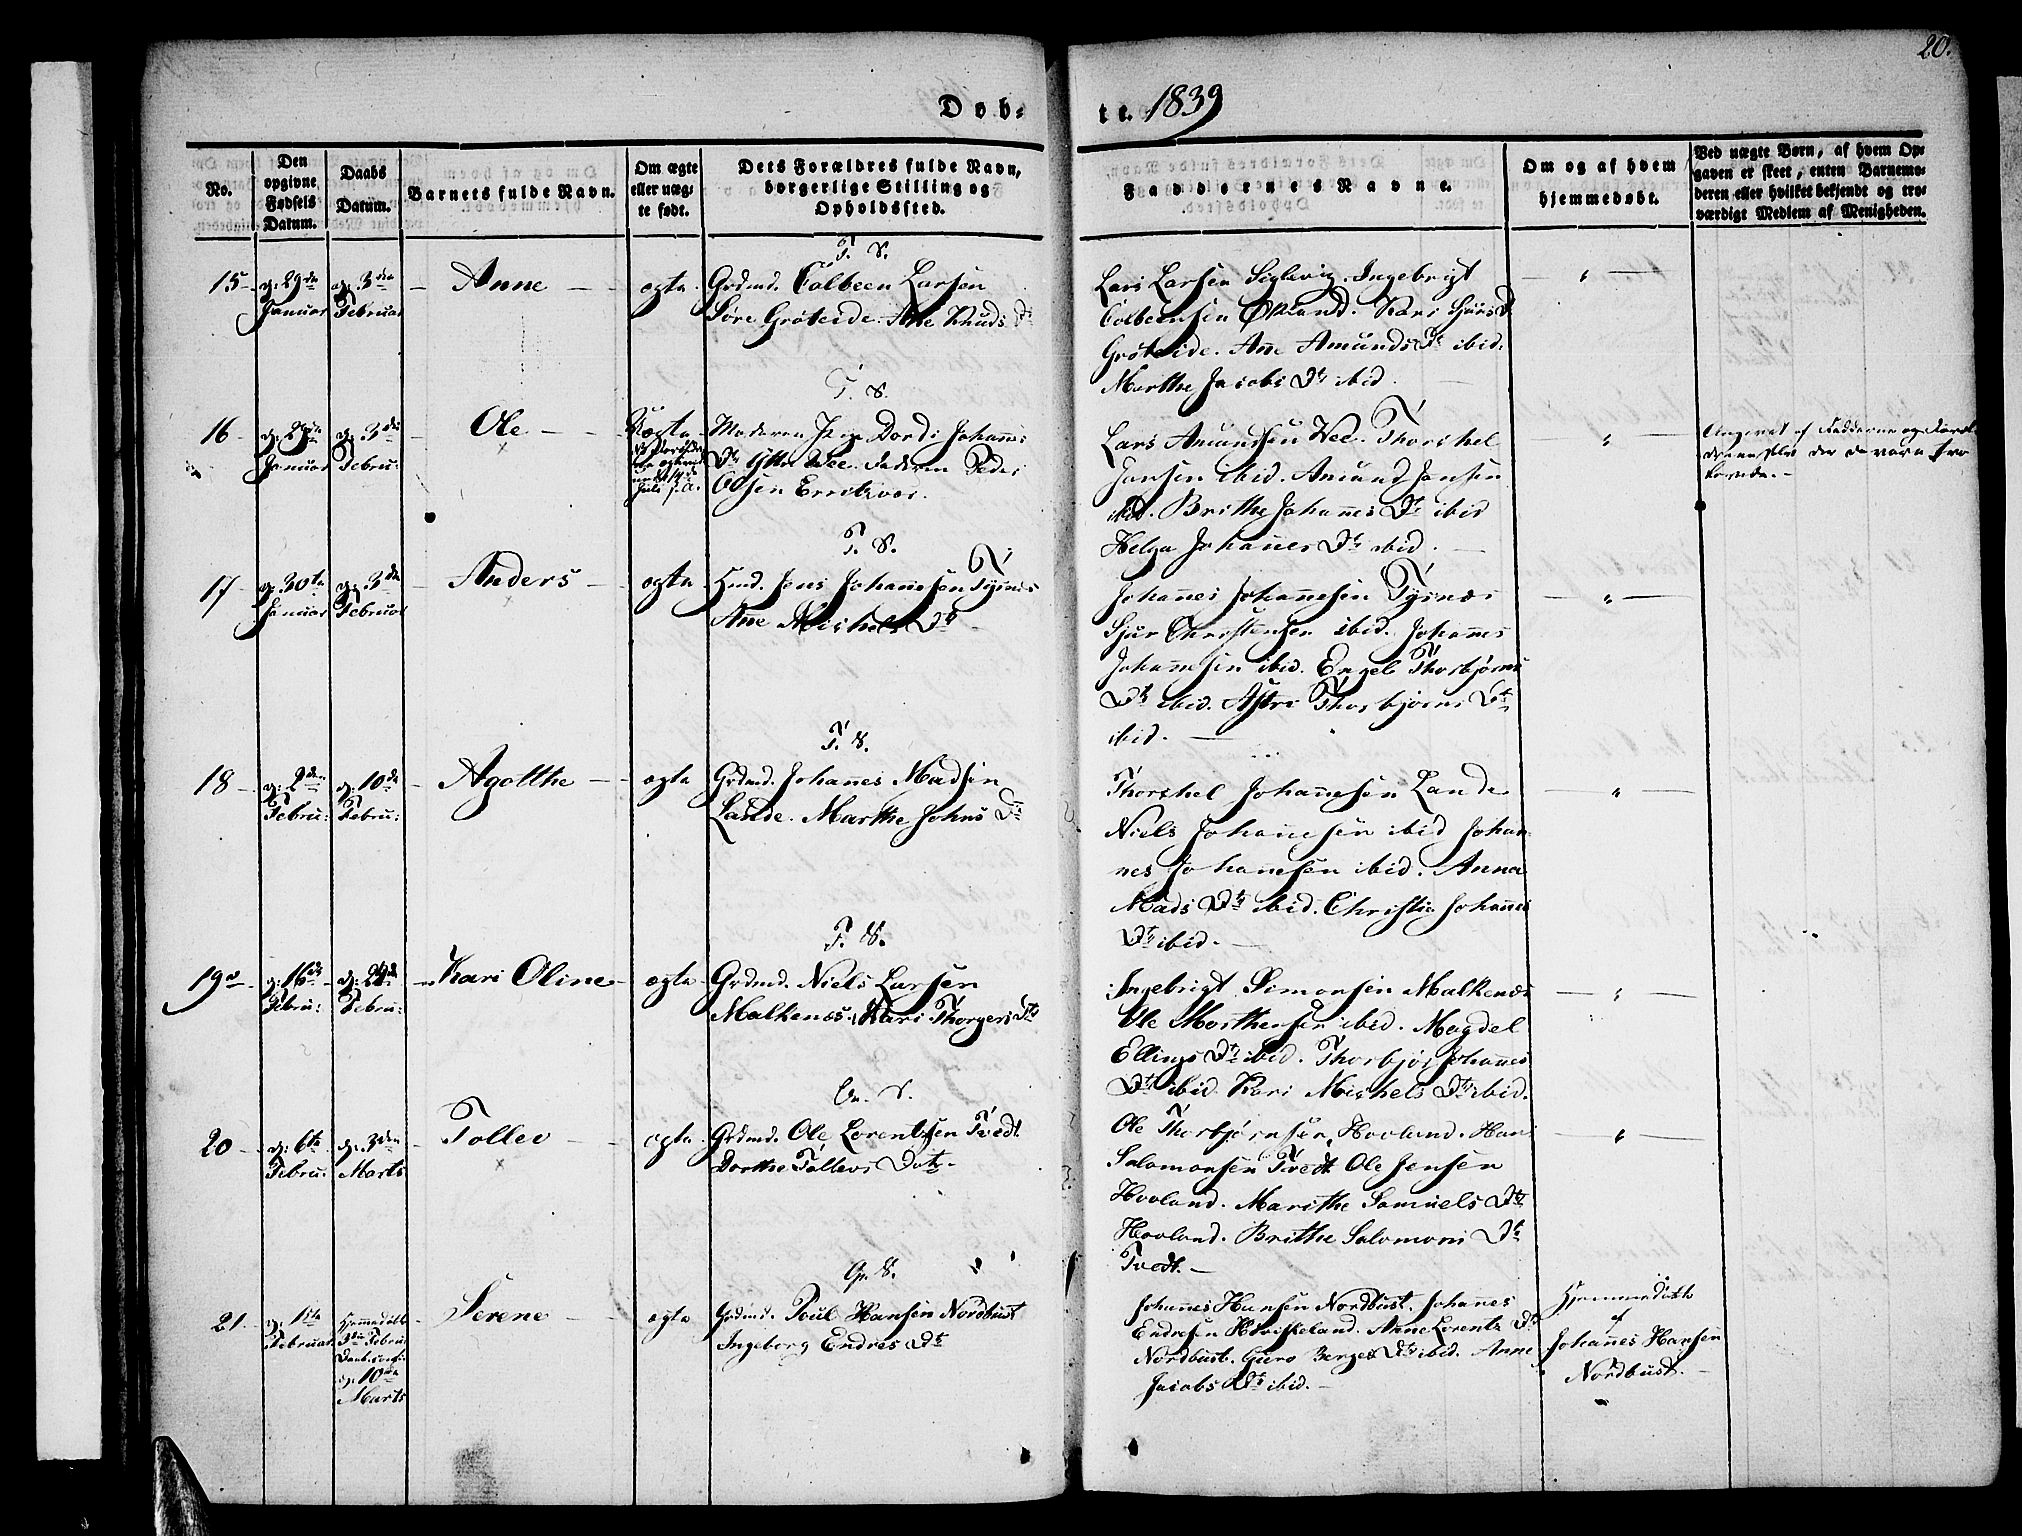 20.
Døb-
te. 1839
No.
Den
opgivne
Fødsels
Datum.
Daabs
Datum.
Barnets fulde Navn.
Om ægte
eller uæg-
te født.
Dets Forældres fulde Navn,
borgerlige Stilling og
Opholdssted.
Faddernes Navne.
Om og af hvem
hjemmedøbt.
Ved uægte Børn, af hvem Op-
gaven er skeet, enten Barnemo-
deren eller hvilket bekjendt og tro-
værdigt Medlem af Menigheden.
T. S.
15
d: 29de
Januar
d: 3den
Februar
Anne
ægte
Grdmd. Colbeen Larsen
Søre Grøteide. Ane Knuds Dtr
Lars Larsen Siglevig. Ingebrigt
Colbeensen Økland. Kari Sjurs D.
Grøteide. Ane Amunds Dtr ibid.
Marthe Jacobs Dtr ibid.
T. S.
16
Januar
d: 3de
Febru:
Ole
Uægte
Moderen Pige Dordi Johannes
Dtr Ytre Wee. Faderen Peder
Olsen
Lars Amundsen Wee. Thorchel
Jansen ibid. Amund Jansen
ibid. Brithe Johannes Dtr ibid
Helga Johannes Dtr ibid.
Angivet af Fadderne og Foræl-
drene selv der de vare tro
lovede.
T. S.
17
d: 30te
Januar
d: 3de
Februar
Anders
ægte
Hmd. Jens Johannesen Tysnes
Ane Michels Dtr
Johannes Johannesen Tysnæs
Sjur Christensen ibid. Johannes
Johannesen ibid. Engel Thorbjørns
Dtr ibid. Astri Thorbjørns Dtr
ibid.
T. S.
18
d: 2den
Febru:
d: 10de
Febru:
Agatthe
ægte
Grdmd. Johannes Madsen
Lande. Marthe Johns Dtr
Thorchel Johannesen Lande
Niels Johannesen ibid Johan-
nes Johannesen ibid. Anna
Mads Dtr ibid. Christie Johannes
Dtr ibid.
T. S.
19
d: 16de
Febru:
d: 24de
Febru:
Kari Oline
ægte
Grdmd. Niels Larsen
Malkenæs. Kari Thorgers Dtr
Ingebrigt Simonsen Malkenæs
Ole Morthensen ibid. Magdel
Ellings Dtr ibid. Thorbjør Johannes
Dtr ibid Kari Michels Dtr ibid.
20
d: 6te
Febru:
d: 3den
Marts
Tollev
ægte
Grdmd. Ole Lorentzen Tvedt
Dorthe Tollevs Datr
Ole Thorbjørnsen Hovland. Hans
Salamonsen Tvedt Ole Jensen
Hovland. Marithe Samuels Dtr
Hovland. Brithe Salomons Dtr
Tvedt.
21
d: 1ste
Februar
Hjemmedøbt
3die Februar
d: 10de
Marts
Serene
ægte
Grdmd. Poul Hansen Nordbust
Ingeborg Endres Dtr
Johannes Hansen Nordbust. Johannes
Endresen Anne Lorents Dtr
Nordbust. Guro Berges Dtr ibid. Anne
Jacobs Dtr ibid.
Hjemmedøbt
af
Johannes Hansen
Nordbust.